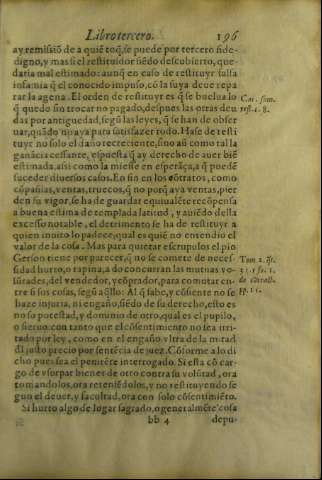 Libro tercero. 196
ay remissiō de a quiē toq̄, se puede por tercero fide-
digno, y mas si el restituidor siēdo descubierto, que-
daria mal estimado: aunq̄ en caso de restituyr falsa
infamia q̄ el conocido impuso, cō la suya deue repa
rar la agena. El orden de restituyr es q̄ se buelua lo
q̄ quedo sin trocar no pagado, despues las otras deu
das por antiguedad, segū las leyes, q̄ se han de obser
uar, quādo no aya para satisfazer todo. Hase de resti
tuyr no solo el daño recreciente, sino aū como tal la
ganācia cessante, espuesta q̄ ay derecho de auer biē
estimada, assi como la miesse en esperāça, a q̄ puedē
suceder diuersos casos. En fin en los cōtratos, como
cōpañias, ventas, truecos, q̄ no porq̄ aya ventas, pier
den su vigor, se ha de guardar equiualēte recōpensa
a buena estima de templada latitud, y auiēdo dessa
excesso notable, el detrimento se ha de restituyr a
quien inuito lo padece, qual es quiē no entendio el
valor de la cosa. Mas para quietar escrupulos el pio
Gerson tiene por parecer, q̄ no se comete de neces-
sidad hurto, o rapina, a do concurran las mutuas vo-
lūtades, del vendedor, y cōprador, para comutar en-
tre si sus cosas, segū aq̄llo: Al q̄ sabe, y cōsiente no se
haze injuria, ni engaño, siēdo de su derecho, esto es
no so potestad, y dominio de otro, qual es el pupilo,
o sieruo, con tanto que el cōsentimiento no sea irri-
tado por ley, como en el engaño vltra de la mitad
dl justo precio por sentēcia de juez. Cōforme a lo di
cho pues sea el penitēte interrogado. Si esta cō car-
go de vsurpar bienes de otro contra su volūtad, ora
tomandolos, ora reteniēdolos, y no restituyendo se
gun el deuer, y facultad, ora con solo cōsentimiēto.
Si hurto algo de lugar sagrado, o generalmēte cosa
bb 4 depu-
Tom 2.